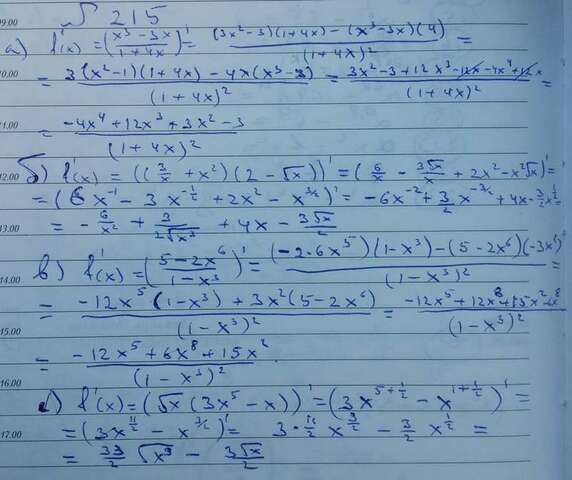 № 215
а) f'(x) = ((x³ - 3x)/(1 + 4x))' = ((3x² - 3)(1 + 4x) - (x³ - 3x)(4))/(1 + 4x)² =
= (3(x² - 1)(1 + 4x) - 4x(x³ - 3))/(1 + 4x)² = (3x² - 3 + 12x³ - 12x - 4x⁴ + 12x)/(1 + 4x)² =
= (-4x⁴ + 12x³ + 3x² - 3)/(1 + 4x)²
б) f'(x) = ((3/x + x²)(2 - √x))' = (6/x - 3√x/x + 2x² - x²√x)' =
= (6x⁻¹ - 3x^(-1/2) + 2x² - x^(3/2))' = -6x⁻² + 3/2 x^(-3/2) + 4x - 3/2 x^(1/2)
= -6/x² + 3/(2√x³) + 4x - 3√x/2
в) f'(x) = ((5 - 2x⁶)/(1 - x³))' = ((-2·6x⁵)(1 - x³) - (5 - 2x⁶)(-3x²))/(1 - x³)² =
= (-12x⁵(1 - x³) + 3x²(5 - 2x⁶))/(1 - x³)² = (-12x⁵ + 12x⁸ + 15x² - 6x⁸)/(1 - x³)²
= (-12x⁵ + 6x⁸ + 15x²)/(1 - x³)²
г) f'(x) = (√x(3x⁵ - x))' = (3x^(5+1/2) - x^(1+1/2))' =
= (3x^(11/2) - x^(3/2))' = 3·11/2 x^(9/2) - 3/2 x^(1/2) =
= 33/2 √x⁹ - 3√x/2